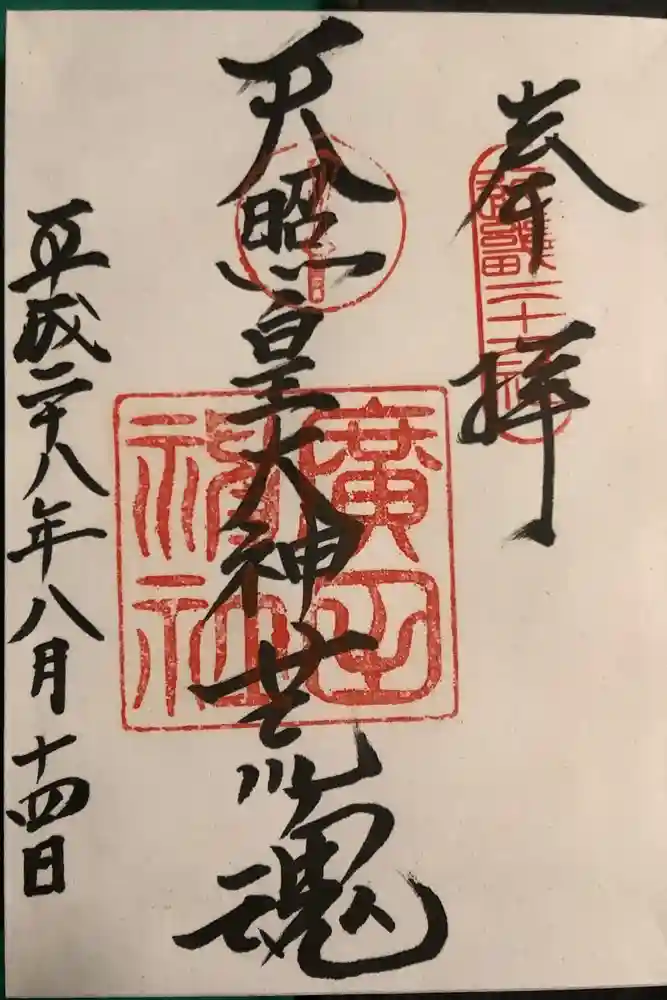 奉拝
天照皇大神荒魂
平成二十八年八月十四日
廣田神社
二十二社